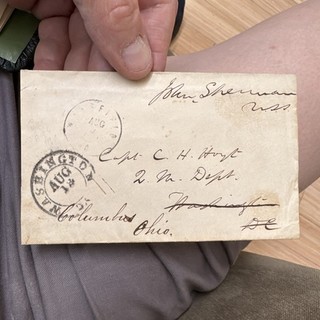 John Sherman
USS
AUG
Capt C. H. Hoyt
2. M. Dept.
WASHINGTON
AUG
Washington
Columbus
D C
Ohio.